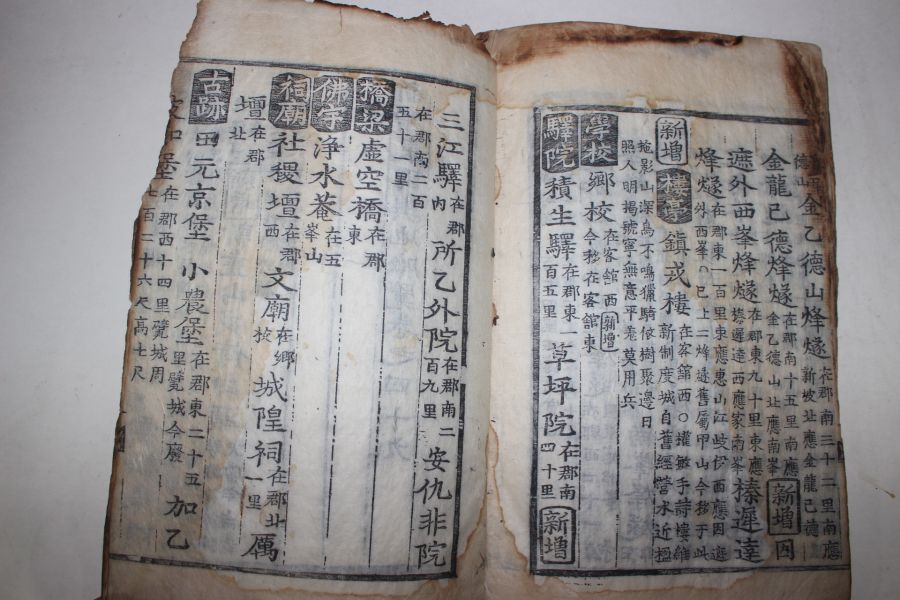 金乙德山烽燧在郡南三十二里南應新坡址應金龍巳德
金龍巳德烽燧在郡南十五里南應金乙德山北應南峯新增因
遮外西峯烽燧在郡東九十里東應榛遲達西應家南峯榛遲達
烽燧在郡東一百里東應惠山江岐伊西應因遮外西峯○已上二烽燧舊屬甲山今移于此
新增樓亭鎭戎樓在客館西○權敏手詩樓雄新制度城自舊經營水近楹
掩影山深鳥不鳴獵騎依樹聚邊日照人明揚號寧無意平卷莫用兵
學校鄕校在客館西新增今移在客館東
驛院積生驛在郡東一百五里草坪院在郡南四十里新增
三江驛在郡內所乙外院在郡南二百九里安仇非院
在郡南二百五十一里
橋梁虛空橋在郡東
佛宇淨水菴在五峯山
祠廟社稷壇在郡西文廟在鄕校城隍祠在郡北一里厲
壇在郡北
古跡田元京堡小農堡在郡東二十五里甓城今廢加乙
堡在郡西十四里甓城周七百二十六尺高七尺